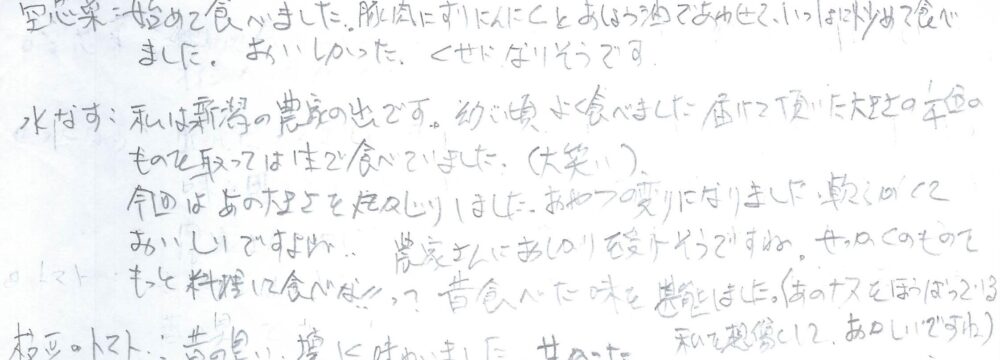 空芯菜：始めて食べました。豚肉にすりにんにくとあしょう油であわせて、いっしょに炒めて食べ
ました。おいしかった、くせになりそうです
水なす：私は新潟の農家の出です。幼い頃よく食べました 届けて頂いた大きさの
ものを取っては生で食べていました。（大笑い）
今回はあの大きさを しました。おやつ変りになりました。
おいしいですよね.. 農家さんにおしかりを受けそうですね。せっかくのもので
もっと料理して食べな!!って 昔食べた味を堪能しました。（あのナスをほうばっている
私を想像して、おかしいですね）
枝豆 トマト：昔の 味わいました